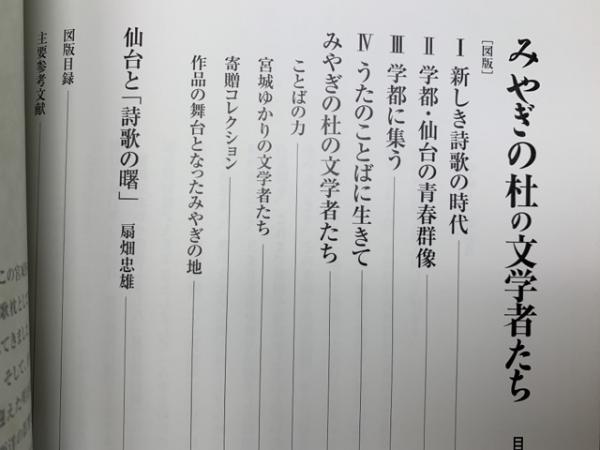 みやぎの杜の文学者たち
目
[図版]
Ⅰ 新しき詩歌の時代
Ⅱ 学都・仙台の青春群像
Ⅲ 学都に集う
Ⅳ うたのことばに生きて
みやぎの杜の文学者たち
ことばの力
宮城ゆかりの文学者たち
寄贈コレクション
作品の舞台となったみやぎの地
仙台と「詩歌の曙」 扇畑忠雄
図版目録
主要参考文献
この宮
歌枕とし
てきました
そして、
迎えた